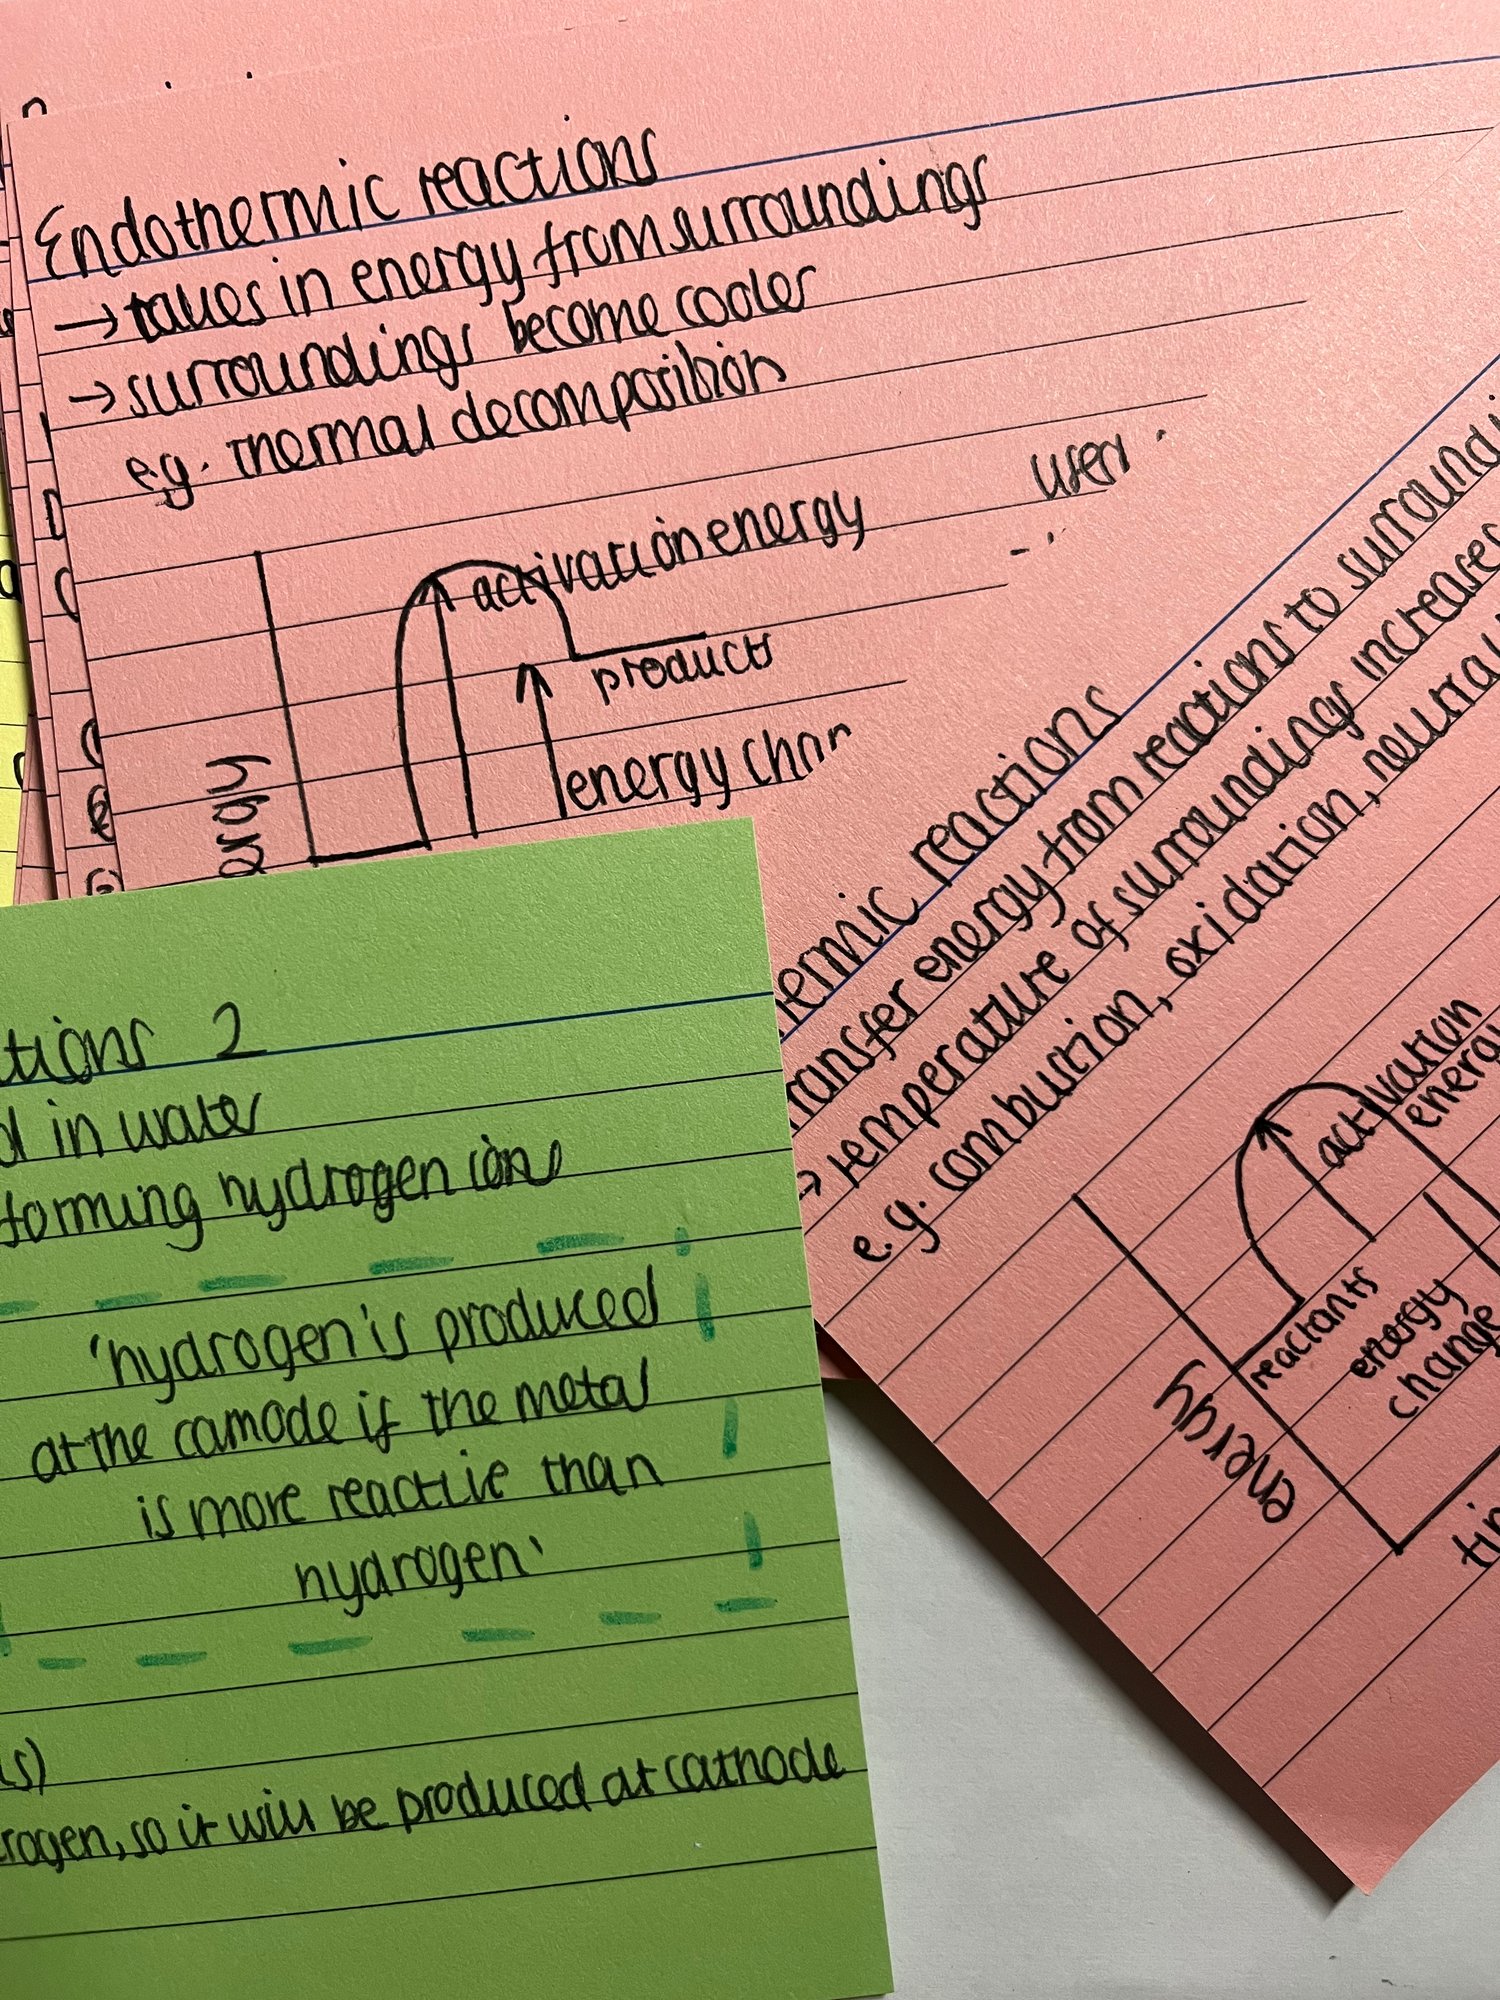 Endothermic reactions
→ takes in energy from surroundings
→ surroundings become cooler
e.g. thermal decomposition
activation energy
products
energy chan
ergy
user
hermic reactions
ransfer energy from reactions to surroundi
→ temperature of surroundings increases
e.g. combustion, oxidation, neutral
activation
energy
reactants
energy
change
energy
tim
tions 2
d in water
forming hydrogen ions
'hydrogen' is produced
at the camode if the metal
is more reactie than
hydrogen'
(s)
rogen, so it will be produced at cathode